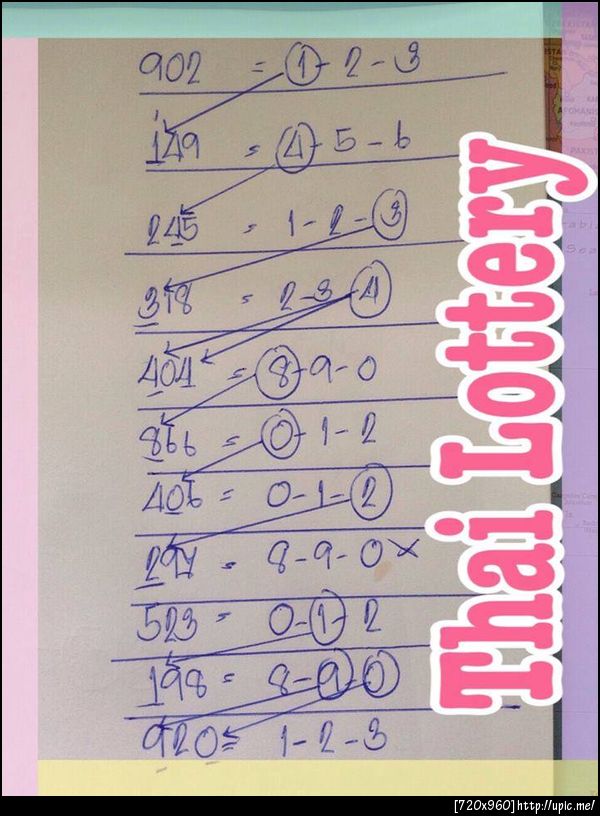 902 = 1 - 2 - 3
149 = 4 - 5 - 6
245 = 1 - 2 - 3
318 = 2 - 3 - 4
404 = 8 - 9 - 0
866 = 0 - 1 - 2
406 = 0 - 1 - 2
297 = 8 - 9 - 0 ×
523 = 0 - 1 - 2
198 = 8 - 9 - 0
920 = 1 - 2 - 3
Thai Lottery
[720x960]http://upic.me/